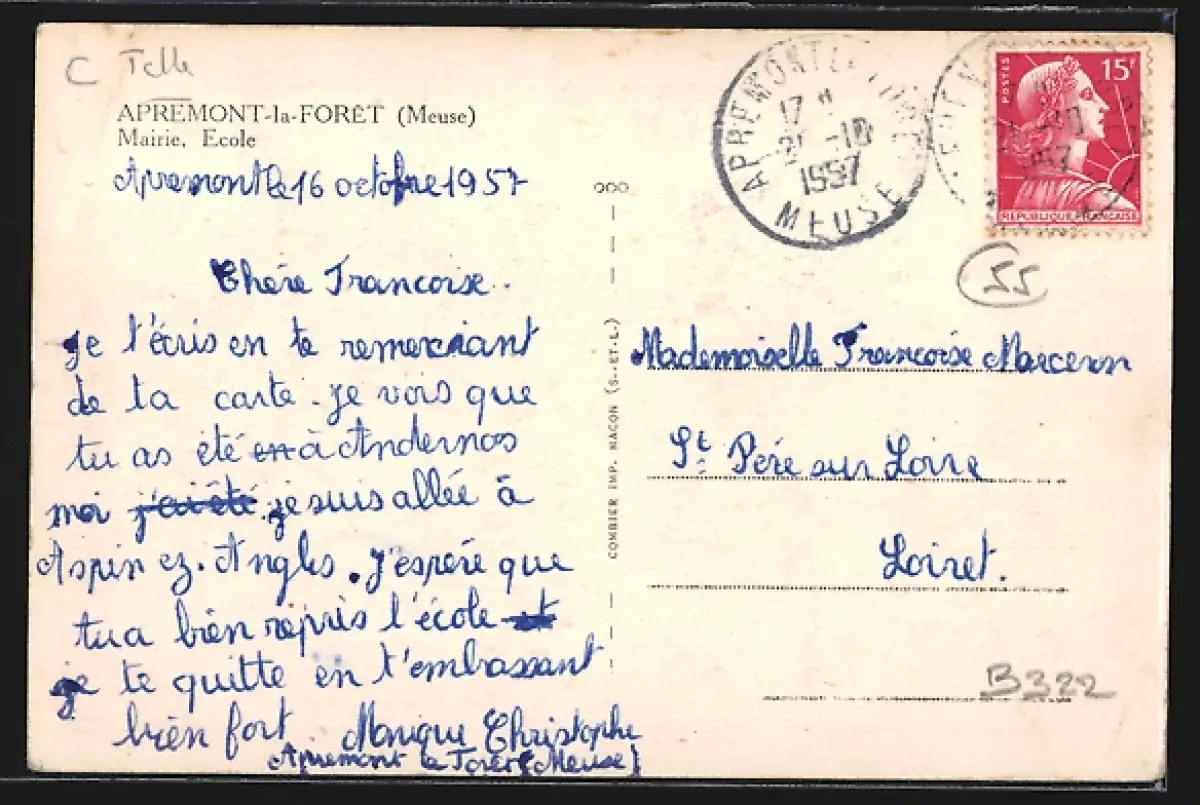 C Telle
APREMONT-la-FORÊT (Meuse)
Mairie, Ecole
Apremont le 16 octobre 1957
Chére Francoise.
Je t'écris en te remerciant
de ta carte. je vois que
tu as été en à Andernos
moi j'ai été je suis allée à
Aspin ez. Angles. J'espére que
tu a bien repris l'école et
je te quitte en t'embrassant
bien fort Monique Christophe
Apremont la Forêt (Meuse)
COMBIER IMP. MACON (S.-ET-L.)
APREMONT LA FORET
17 H
21 -10
1957
MEUSE
POSTES
15F
REPUBLIQUE FRANCAISE
-10
1957
55
Mademoiselle Francoise Marceron
St Pére sur Loire
Loiret.
B322